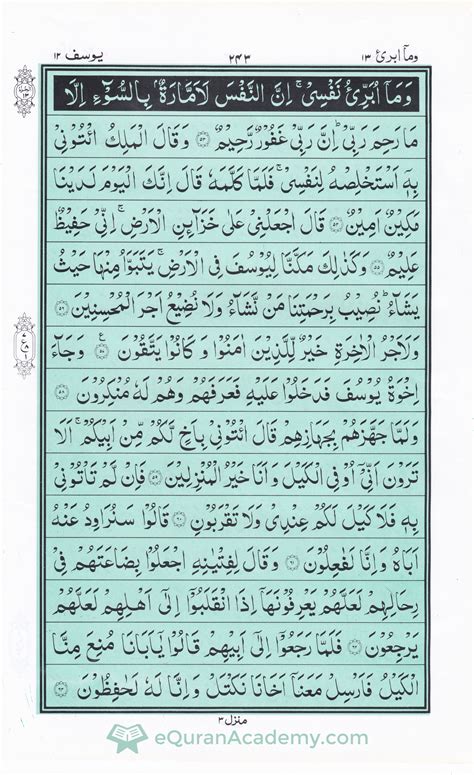 يوسف ١٢ ٢٤٣ وماۤ ابرئ ١٣
وَمَاۤ اُبَرِّئُ نَفْسِیْ ۚ اِنَّ النَّفْسَ لَاَمَّارَةٌۢ بِالسُّوْٓءِ اِلَّا
مَا رَحِمَ رَبِّیْ ؕ اِنَّ رَبِّیْ غَفُوْرٌ رَّحِیْمٌ ﴿۵۳﴾ وَقَالَ الْمَلِكُ ائْتُوْنِیْ
بِهٖۤ اَسْتَخْلِصْهُ لِنَفْسِیْ ۚ فَلَمَّا كَلَّمَهٗ قَالَ اِنَّكَ الْیَوْمَ لَدَیْنَا
مَكِیْنٌ اَمِیْنٌ ﴿۵۴﴾ قَالَ اجْعَلْنِیْ عَلٰی خَزَآىِٕنِ الْاَرْضِ ۚ اِنِّیْ حَفِیْظٌ
عَلِیْمٌ ﴿۵۵﴾ وَكَذٰلِكَ مَكَّنَّا لِیُوْسُفَ فِی الْاَرْضِ ۚ یَتَبَوَّاُ مِنْهَا حَیْثُ
یَشَآءُ ؕ نُصِیْبُ بِرَحْمَتِنَا مَنْ نَّشَآءُ وَلَا نُضِیْعُ اَجْرَ الْمُحْسِنِیْنَ ﴿۵۶﴾
وَلَاَجْرُ الْاٰخِرَةِ خَیْرٌ لِّلَّذِیْنَ اٰمَنُوْا وَكَانُوْا یَتَّقُوْنَ ﴿۵۷﴾ وَجَآءَ
اِخْوَةُ یُوْسُفَ فَدَخَلُوْا عَلَیْهِ فَعَرَفَهُمْ وَهُمْ لَهٗ مُنْكِرُوْنَ ﴿۵۸﴾
وَلَمَّا جَهَّزَهُمْ بِجَهَازِهِمْ قَالَ ائْتُوْنِیْ بِاَخٍ لَّكُمْ مِّنْ اَبِیْكُمْ ۚ اَلَا
تَرَوْنَ اَنِّیْۤ اُوْفِی الْكَیْلَ وَاَنَا خَیْرُ الْمُنْزِلِیْنَ ﴿۵۹﴾ فَاِنْ لَّمْ تَاْتُوْنِیْ
بِهٖ فَلَا كَیْلَ لَكُمْ عِنْدِیْ وَلَا تَقْرَبُوْنِ ﴿۶۰﴾ قَالُوْا سَنُرَاوِدُ عَنْهُ
اَبَاهُ وَاِنَّا لَفٰعِلُوْنَ ﴿۶۱﴾ وَقَالَ لِفِتْیٰنِهِ اجْعَلُوْا بِضَاعَتَهُمْ فِیْ
رِحَالِهِمْ لَعَلَّهُمْ یَعْرِفُوْنَهَاۤ اِذَا انْقَلَبُوْۤا اِلٰۤی اَهْلِهِمْ لَعَلَّهُمْ
یَرْجِعُوْنَ ﴿۶۲﴾ فَلَمَّا رَجَعُوْۤا اِلٰۤی اَبِیْهِمْ قَالُوْا یٰۤاَبَانَا مُنِعَ مِنَّا
الْكَیْلُ فَاَرْسِلْ مَعَنَاۤ اَخَانَا نَكْتَلْ وَاِنَّا لَهٗ لَحٰفِظُوْنَ ﴿۶۳﴾
منزل ٣
eQuranAcademy.com